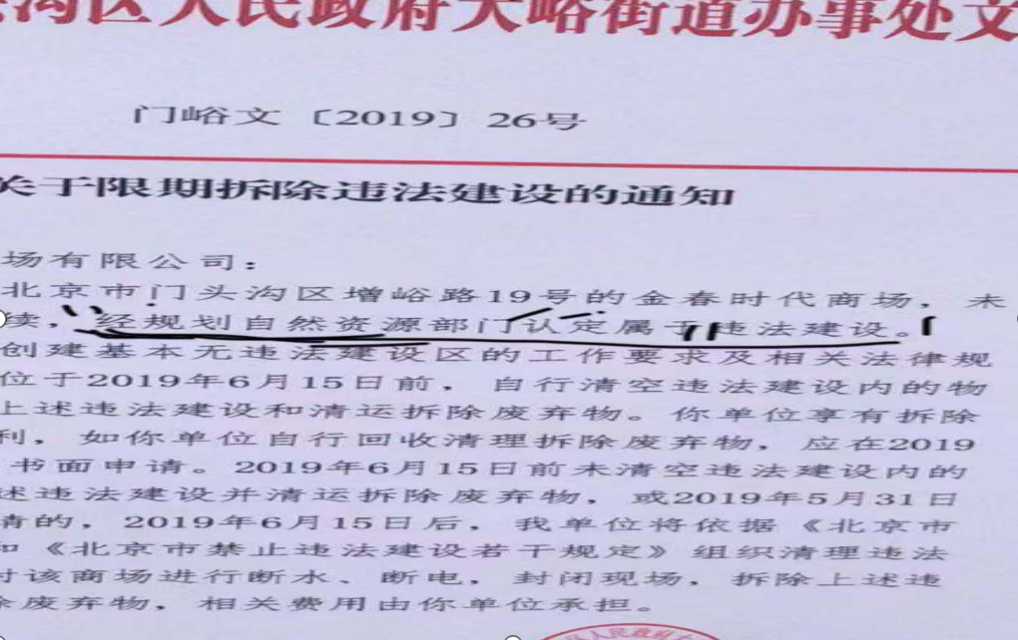 沟区人民政府大峪街道办事处文
门峪文〔2019〕26号
关于限期拆除违法建设的通知
场有限公司：
北京市门头沟区增峪路19号的金春时代商场，未
续，经规划自然资源部门认定属于违法建设。
创建基本无违法建设区的工作要求及相关法律规
位于2019年6月15日前，自行清空违法建设内的物
上述违法建设和清运拆除废弃物。你单位享有拆除
利，如你单位自行回收清理拆除废弃物，应在2019
书面申请。2019年6月15日前未清空违法建设内的
述违法建设并清运拆除废弃物，或2019年5月31日
请的，2019年6月15日后，我单位将依据《北京市
和《北京市禁止违法建设若干规定》组织清理违法
对该商场进行断水、断电，封闭现场，拆除上述违
除废弃物，相关费用由你单位承担。
区人民政府大